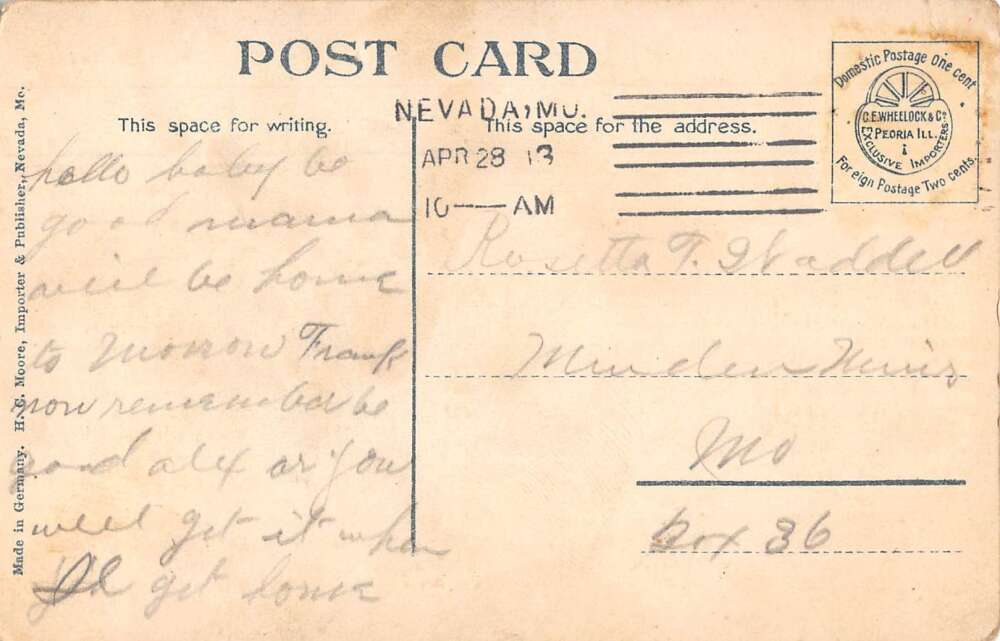 POST CARD
This space for writing.
This space for the address.
NEVADA, MO.
APR 28 13
10 — AM
Domestic Postage One cent
C.E. WHEELOCK & Co
PEORIA ILL.
EXCLUSIVE IMPORTERS
Foreign Postage Two cents.
Made in Germany. H. C. Moore, Importer & Publisher, Nevada, Mo.
hello baby be
good mama
will be home
to morrow Frank
now remember be
good alex or you
will get it when
I get home
Rosetta F. Waddell
Minden Mines
Mo
Box 36